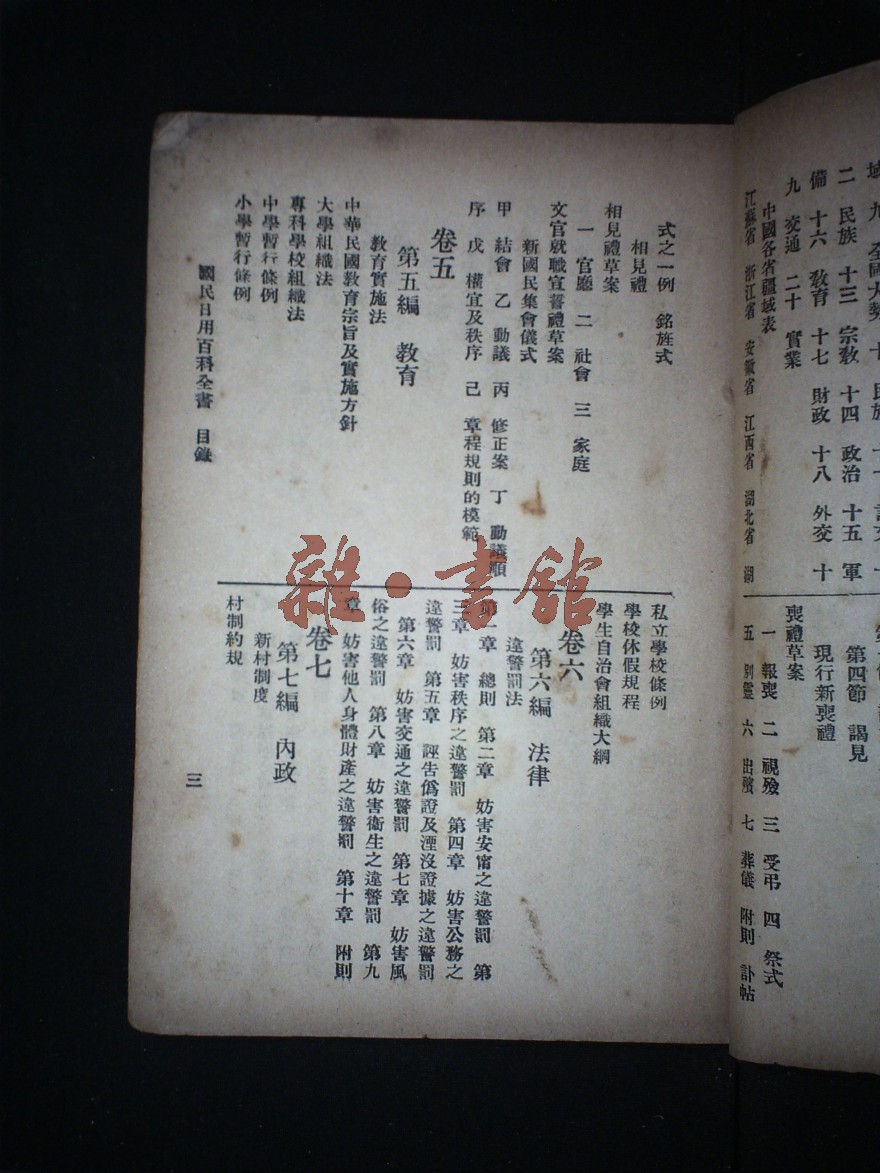 二 民族 十三 宗教 十四 政治 十五 軍
備 十六 教育 十七 財政 十八 外交 十
九 交通 二十 實業
中國各省疆域表
江蘇省 浙江省 安徽省 江西省 湖北省 湖
第四節 謁見
現行新喪禮
喪禮草案
一 報喪 二 視殮 三 受弔 四 祭式
五 別靈 六 出殯 七 葬儀 附則 訃帖
式之一例 銘旌式
相見禮
相見禮草案
一 官廳 二 社會 三 家庭
文官就職宣誓禮草案
新國民集會儀式
甲 結會 乙 動議 丙 修正案 丁 動議順
序 戊 權宜及秩序 己 章程規則的模範
卷五
第五編 教育
教育實施法
中華民國教育宗旨及實施方針
大學組織法
專科學校組織法
中學暫行條例
小學暫行條例
私立學校條例
學校休假規程
學生自治會組織大綱
卷六
第六編 法律
違警罰法
第一章 總則 第二章 妨害安甯之違警罰 第
三章 妨害秩序之違警罰 第四章 妨害公務之
違警罰 第五章 誣告僞證及湮沒證據之違警罰
第六章 妨害交通之違警罰 第七章 妨害風
俗之違警罰 第八章 妨害衞生之違警罰 第九
章 妨害他人身體財產之違警罰 第十章 附則
卷七
第七編 內政
新村制度
村制約規
國民日用百科全書 目錄
三
雜·書館